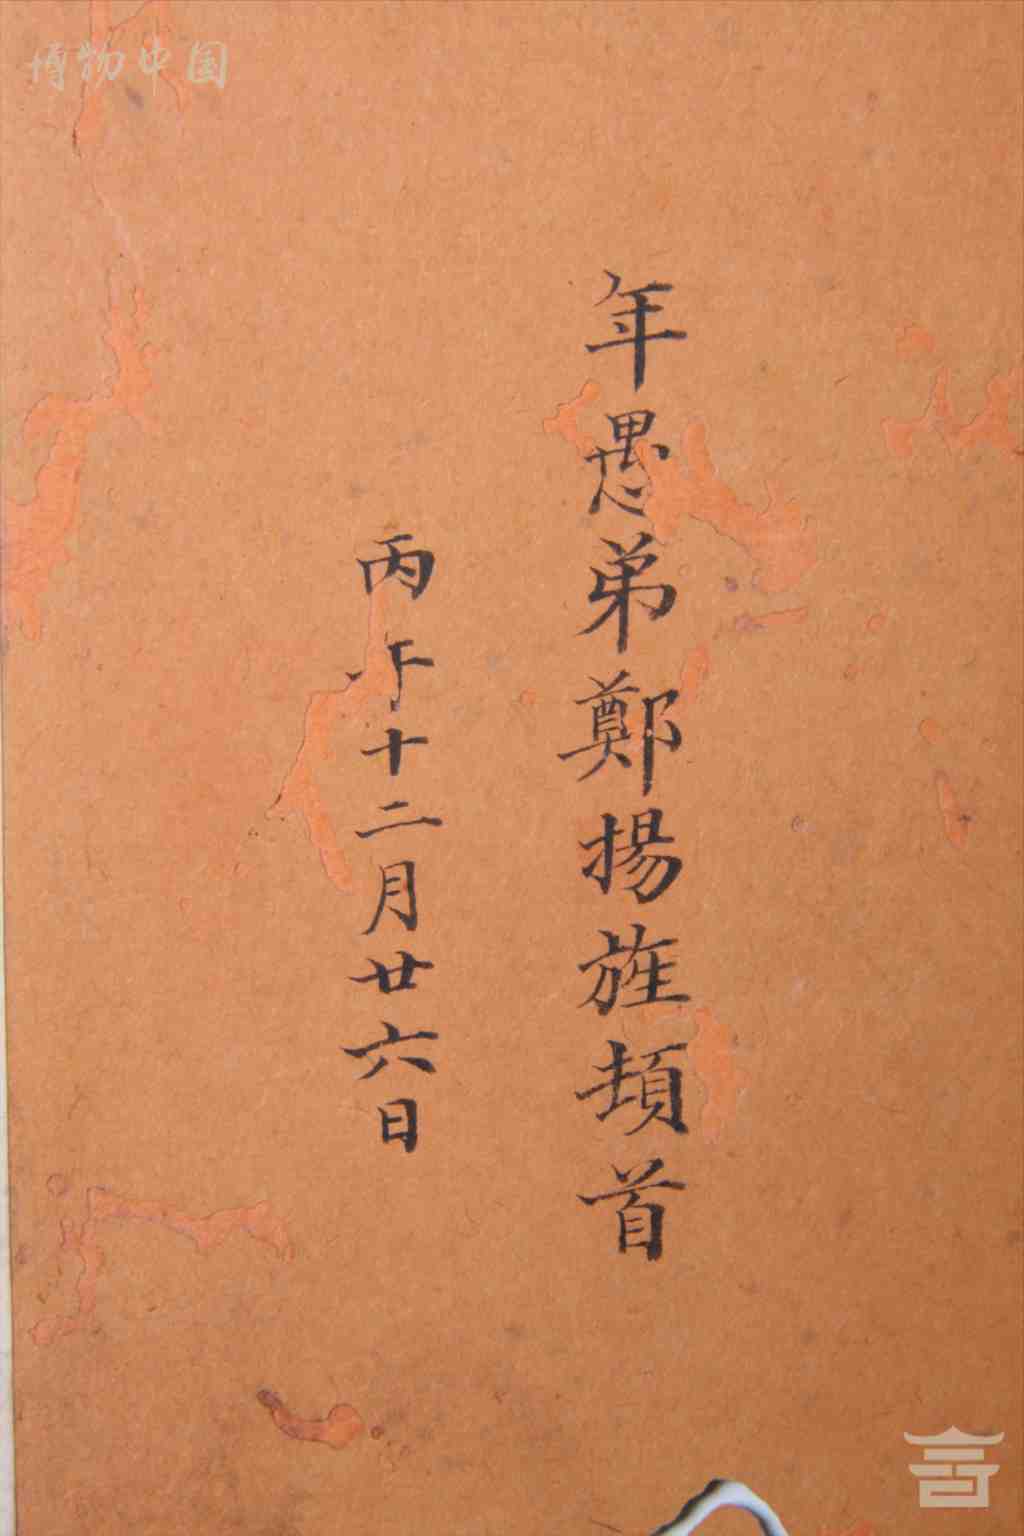 博物中国
年愚弟鄭揚旌頓首
丙午十二月廿六日